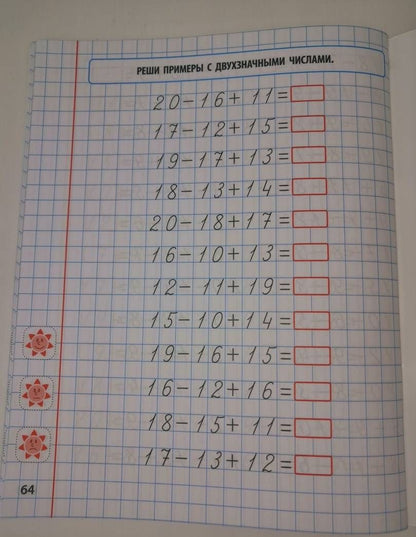 РЕШИ ПРИМЕРЫ С ДВУХЗНАЧНЫМИ ЧИСЛАМИ.
20-16+11=
17-12+15=
19-17+13=
18-13+14=
20-18+17=
16-10+13=
12-11+19=
15-10+14=
19-16+15=
16-12+16=
18-15+11=
17-13+12=
64